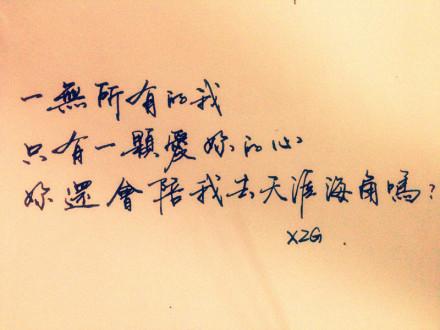 一無所有的我
只有一顆愛妳的心
妳還會陪我去天涯海角嗎？
XZG.